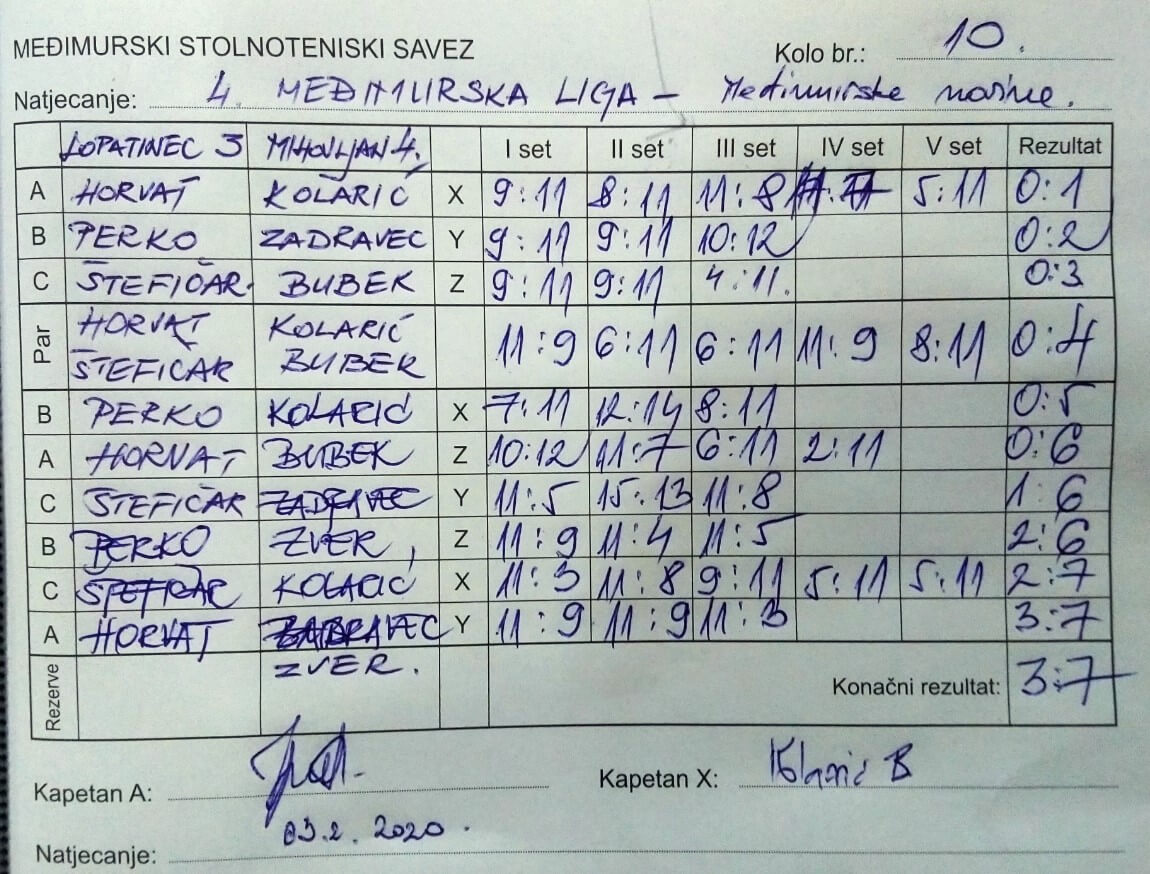 MEĐIMURSKI STOLNOTENISKI SAVEZ Kolo br.: 10.
Natjecanje: 4. MEĐIMURSKA LIGA - Međimurske novine.
LOPATINEC 3 MIHOVLJAN 4. I set II set III set IV set V set Rezultat
A HORVAT KOLARIĆ X 9:11 8:11 11:8 5:11 0:1
B PERKO ZADRAVEC Y 9:11 9:11 10:12 0:2
C ŠTEFIČAR BUBEK Z 9:11 9:11 4:11. 0:3
Par HORVAT KOLARIĆ
ŠTEFIČAR BUBER 11:9 6:11 6:11 11:9 8:11 0:4
B PERKO KOLARIĆ X 7:11 12:14 8:11 0:5
A HORVAT BUBEK Z 10:12 11:7 6:11 2:11 0:6
C ŠTEFIČAR ZADRAVEC Y 11:5 15:13 11:8 1:6
B PERKO ZVER, Z 11:9 11:4 11:5 2:6
C KOLARIĆ X 11:3 11:8 9:11 5:11 5:11 2:7
A HORVAT Y 11:9 11:9 11:3 3:7
Rezerve ZVER. Konačni rezultat: 3:7
Kapetan A: Kapetan X: B
03.2.2020.
Natjecanje: